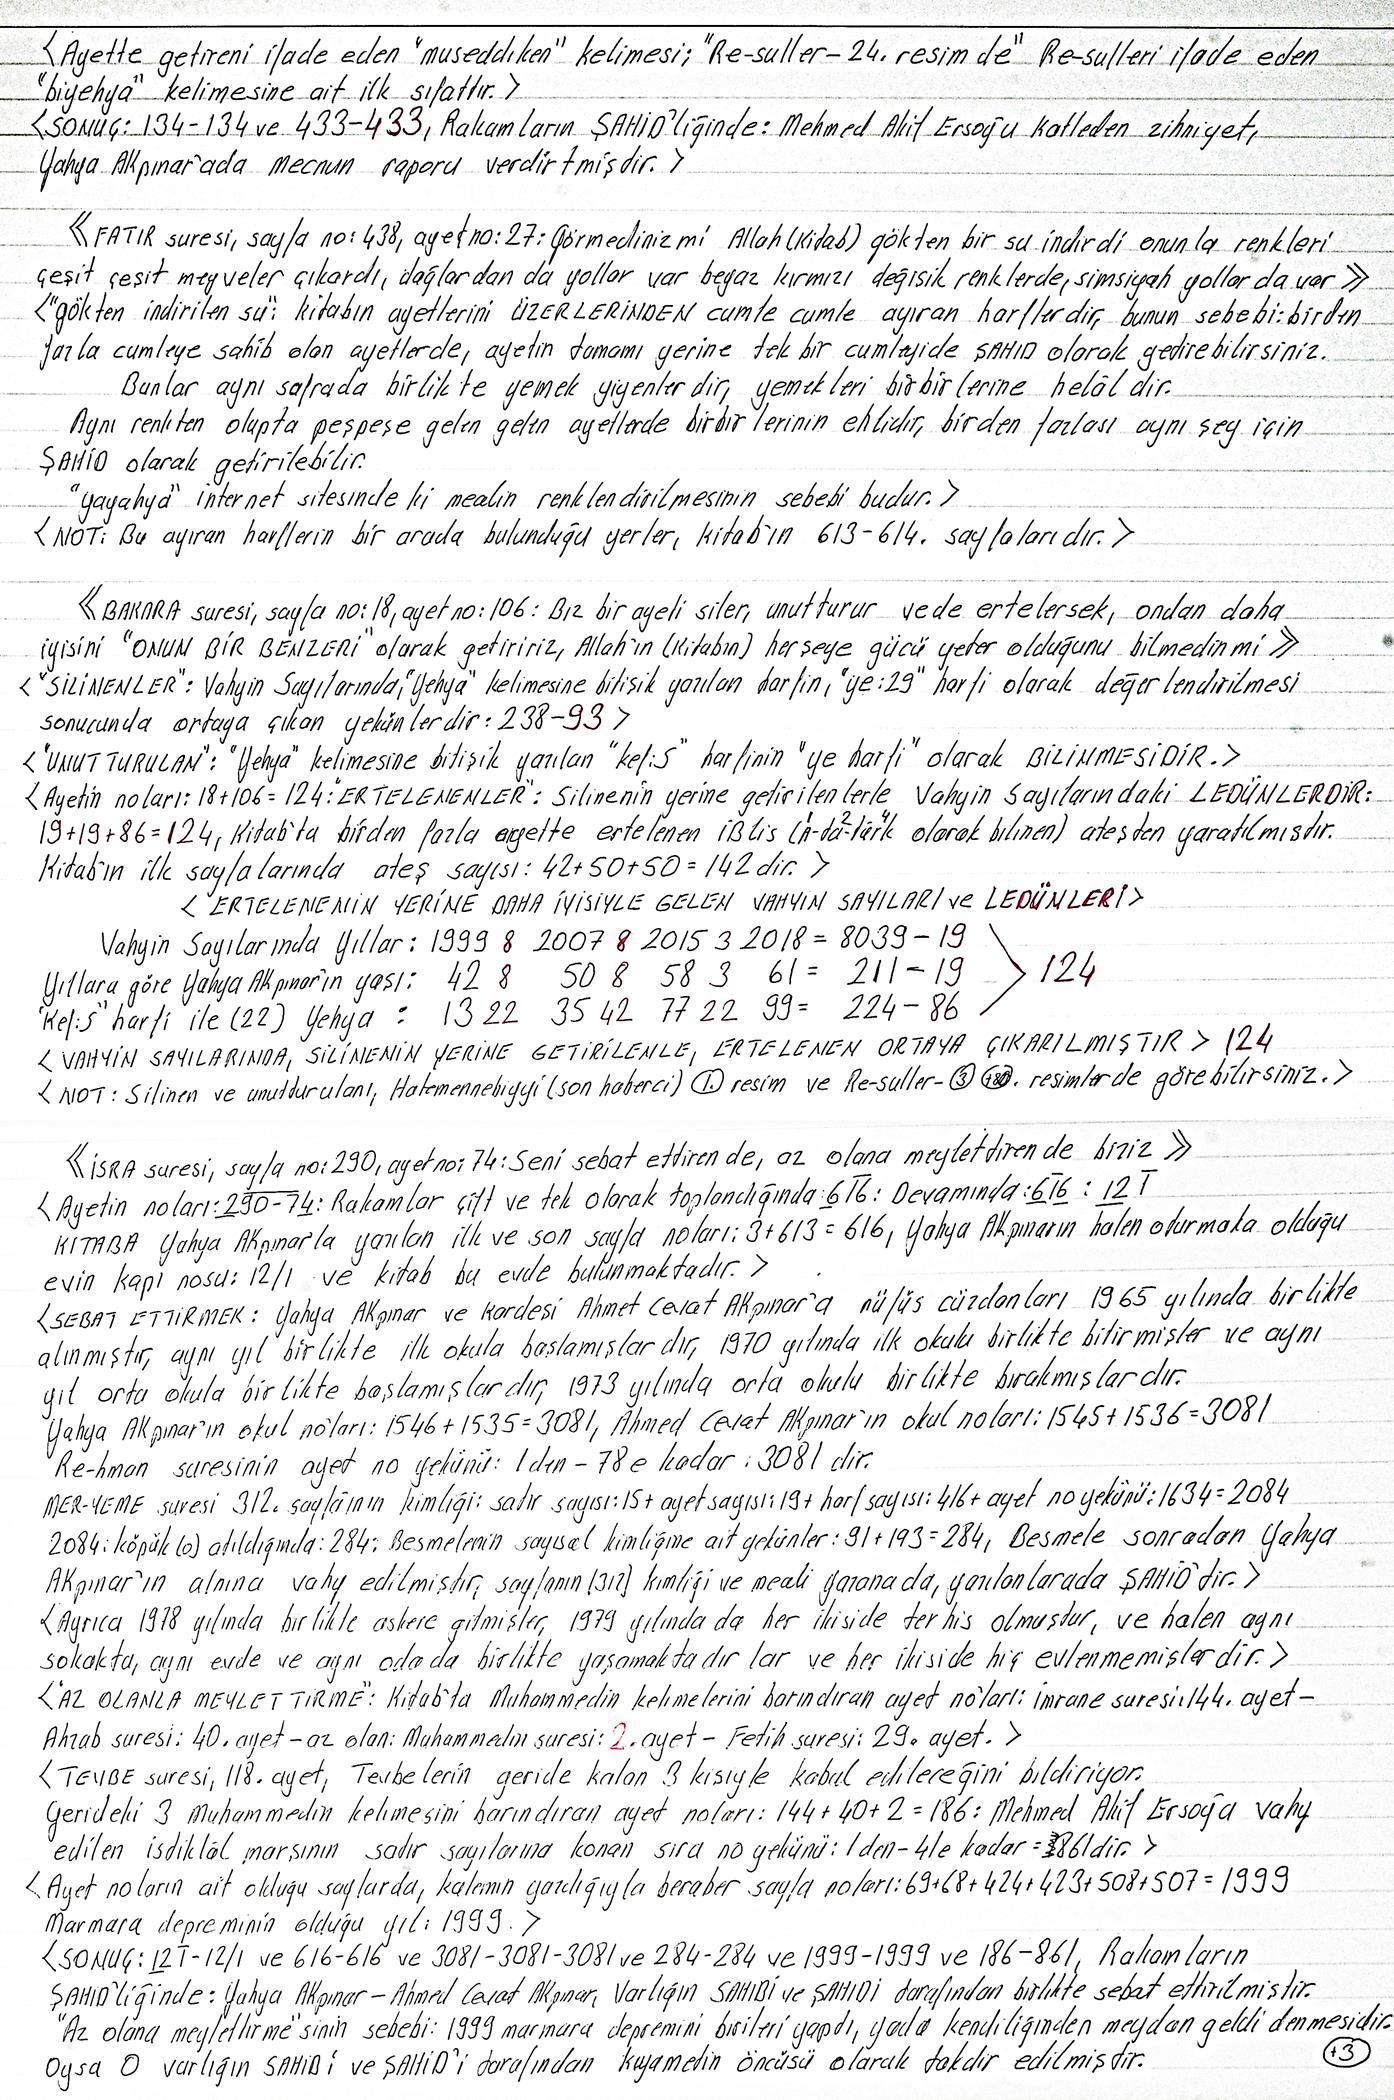 <Ayette getireni ifade eden "museddıken" kelimesi; "Re-suller-24. resim de" Re-sulleri ifade eden
"biyehyâ" kelimesine ait ilk sıfattır.>
<SONUÇ: 134-134 ve 433-433, Rakamların ŞAHİD'liğinde: Mehmed Akif Ersoğu katleden zihniyet,
Yahya Akpınar'ada mecnun raporu verdirtmişdir.>
《FATIR suresi, sayfa no: 438, ayet no: 27: Görmediniz mi Allah (Kitab) gökten bir su indirdi onunla renkleri
çeşit çeşit meyveler çıkardı, dağlardan da yollar var beyaz kırmızı değişik renklerde, simsiyah yollar da var》
<"gökten indirilen su": kitabın ayetlerini ÜZERLERİNDEN cumle cumle ayıran harflerdir, bunun sebebi: birden
fazla cumleye sahib olan ayetlerde, ayetin tamamı yerine tek bir cumleyide ŞAHİD olarak getirebilirsiniz.
Bunlar aynı safrada birlikte yemek yiyenlerdir, yemekleri birbirlerine helâldir.
Aynı renkten olupta peşpeşe gelen gelen ayetlerde birbirlerinin ehlidir, birden fazlası aynı şey için
ŞAHİD olarak getirilebilir.
"yayahyâ" internet sitesinde ki mealin renklendirilmesinin sebebi budur.>
<NOT: Bu ayıran harflerin bir arada bulunduğu yerler, kitab'ın 613-614. sayfalarıdır.>
《BAKARA suresi, sayfa no: 18, ayet no: 106: Biz bir ayeti siler, unutturur vede ertelersek, ondan daha
iyisini "ONUN BİR BENZERİ" olarak getiririz, Allah'ın (Kitabın) herşeye gücü yeter olduğunu bilmedin mi》
<"SİLİNENLER": Vahyin Sayılarında, "Yehyâ" kelimesine bitişik yazılan harfin, "ye:29" harfi olarak değerlendirilmesi
sonucunda ortaya çıkan yekünlerdir: 238-93>
<"UNUTTURULAN": "Yehyâ" kelimesine bitişik yazılan "kef:S" harfinin "ye harfi" olarak BİLİNMESİDİR.>
<Ayetin noları: 18+106=124: "ERTELENENLER": Silinenin yerine getirilenlerle Vahyin Sayılarındaki LEDÜNLERDİR:
19+19+86=124, Kitab'ta birden fazla ayette ertelenen iblis (A-tâ-tärk olarak bilinen) ateşten yaratılmıştır.
Kitab'ın ilk sayfalarında ateş sayısı: 42+50+50=142 dir.>
<"ERTELENENİN YERİNE DAHA İYİSİYLE GELEN VAHYİN SAYILARI ve LEDÜNLERİ>
Vahyin Sayılarında Yıllar: 1999 8 2007 8 2015 3 2018 = 8039-19
Yıllara göre Yahya Akpınar'ın yaşı: 42 8 50 8 58 3 61 = 211-19 124
"Kef:S" harfi ile (22) Yehya: 13 22 35 42 77 22 99= 224-86
<VAHYİN SAYILARINDA, SİLİNENİN YERİNE GETİRİLENLE, ERTELENEN ORTAYA ÇIKARILMIŞTIR> 124
<NOT: Silinen ve unutturulanı, Hatemennebiyyi (son haberci) 1. resim ve Re-suller-3 resimlerde görebilirsiniz.>
《İSRA suresi, sayfa no: 290, ayet no: 74: Seni sebat ettiren de, az olana meylettiren de biziz》
<Ayetin noları: 290-74: Rakamlar çift ve tek olarak toplandığında: 616: Devamında: 616: 12 1
KITABA Yahya Akpınar'la yazılan ilk ve son sayfa noları: 3+613=616, Yahya Akpınarın halen oturmakta olduğu
evin kapı nosu: 12/1 ve kitab bu evde bulunmaktadır.>
<SEBAT ETTİRMEK: Yahya Akpınar ve kardeşi Ahmet Cevat Akpınar'a nüfüs cüzdanları 1965 yılında birlikte
alınmıştır, aynı yıl birlikte ilk okula başlamışlardır, 1970 yılında ilk okulu birlikte bitirmişler ve aynı
yıl orta okula birlikte başlamışlardır, 1973 yılında orta okulu birlikte bırakmışlardır.
Yahya Akpınar'ın okul noları: 1546+1535=3081, Ahmed Cevat Akpınar'ın okul noları: 1545+1536=3081
Re-hman suresinin ayet no yekünü: 1 den-78 e kadar: 3081 dir.
MER-YEME suresi 312. sayfanın kimliği: satır sayısı: 15+ ayet sayısı: 19+ harf sayısı: 416+ ayet no yekünü: 1634=2084
2084: köpük (0) atıldığında: 284; Besmelenin sayısal kimliğine ait yekünler: 91+193=284, Besmele sonradan Yahya
Akpınar'ın alnına vahy edilmiştir, sayfanın (312) kimliği ve meali yazana da, yazılanlarada ŞAHİD'tir.>
<Ayrıca 1978 yılında birlikte askere gitmişler, 1979 yılında da her ikiside terhis olmuştur, ve halen aynı
sokakta, aynı evde ve aynı odada birlikte yaşamaktadırlar ve her ikiside hiç evlenmemişlerdir.>
<"AZ OLANLA MEYLETTİRME": Kitab'ta Muhammedin kelimelerini barındıran ayet noları: İmrane suresi: 144. ayet-
Ahzab suresi: 40. ayet-az olan: Muhammedin suresi: 2. ayet- Fetih suresi: 29. ayet.>
<TEVBE suresi, 118. ayet, Tevbelerin geride kalan 3 kişiyle kabul edileceğini bildiriyor.
Gerideki 3 Muhammedin kelimesini barındıran ayet noları: 144+40+2=186: Mehmed Akif Ersoğa vahy
edilen isdiklâl marşının satır sayılarına konan sıra no yekünü: 1 den-41e kadar=861dir.>
<Ayet noların ait olduğu sayfarda, kalemin yazdığıyla beraber sayfa noları: 69+68+424+423+508+507=1999
Marmara depreminin olduğu yıl: 1999.>
<SONUÇ: 12 1-12/1 ve 616-616 ve 3081-3081-3081 ve 284-284 ve 1999-1999 ve 186-861, Rakamların
ŞAHİD'liğinde: Yahya Akpınar-Ahmed Cevat Akpınar, Varlığın SAHİBİ ve ŞAHİDİ tarafından birlikte sebat ettirilmiştir.
"Az olana meylettirme"sinin sebebi: 1999 marmara depremini birileri yaptı, yada kendiliğinden meydan geldi denmesidir.
Oysa O varlığın SAHİBİ ve ŞAHİD'i tarafından kıyametin öncüsü olarak takdir edilmiştir.
+3